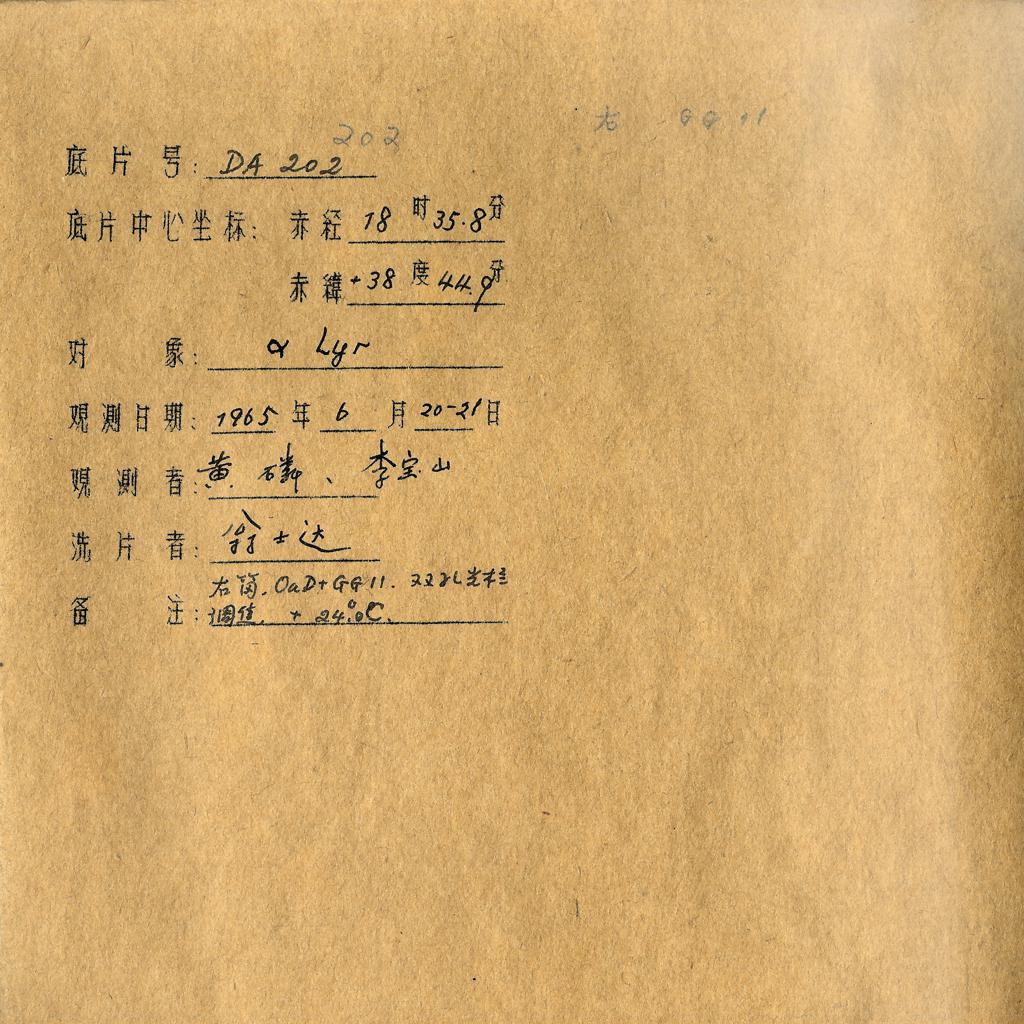 202 右 GG 11
底片号: DA 202
底片中心坐标: 赤経 18 时 35.8 分
赤緯 +38 度 44.9 分
对象: α Lyr
观测日期: 1965 年 6 月 20-21 日
观测者: 黄磷、李宝山
洗片者: 翁士达
右筒. OaD+GG11. 双孔光栏
备注: 调焦. + 24.°0C.